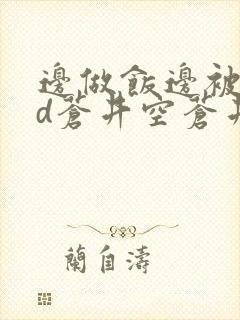 邊做飯邊被
d蒼井空蒼井
蘭自濤